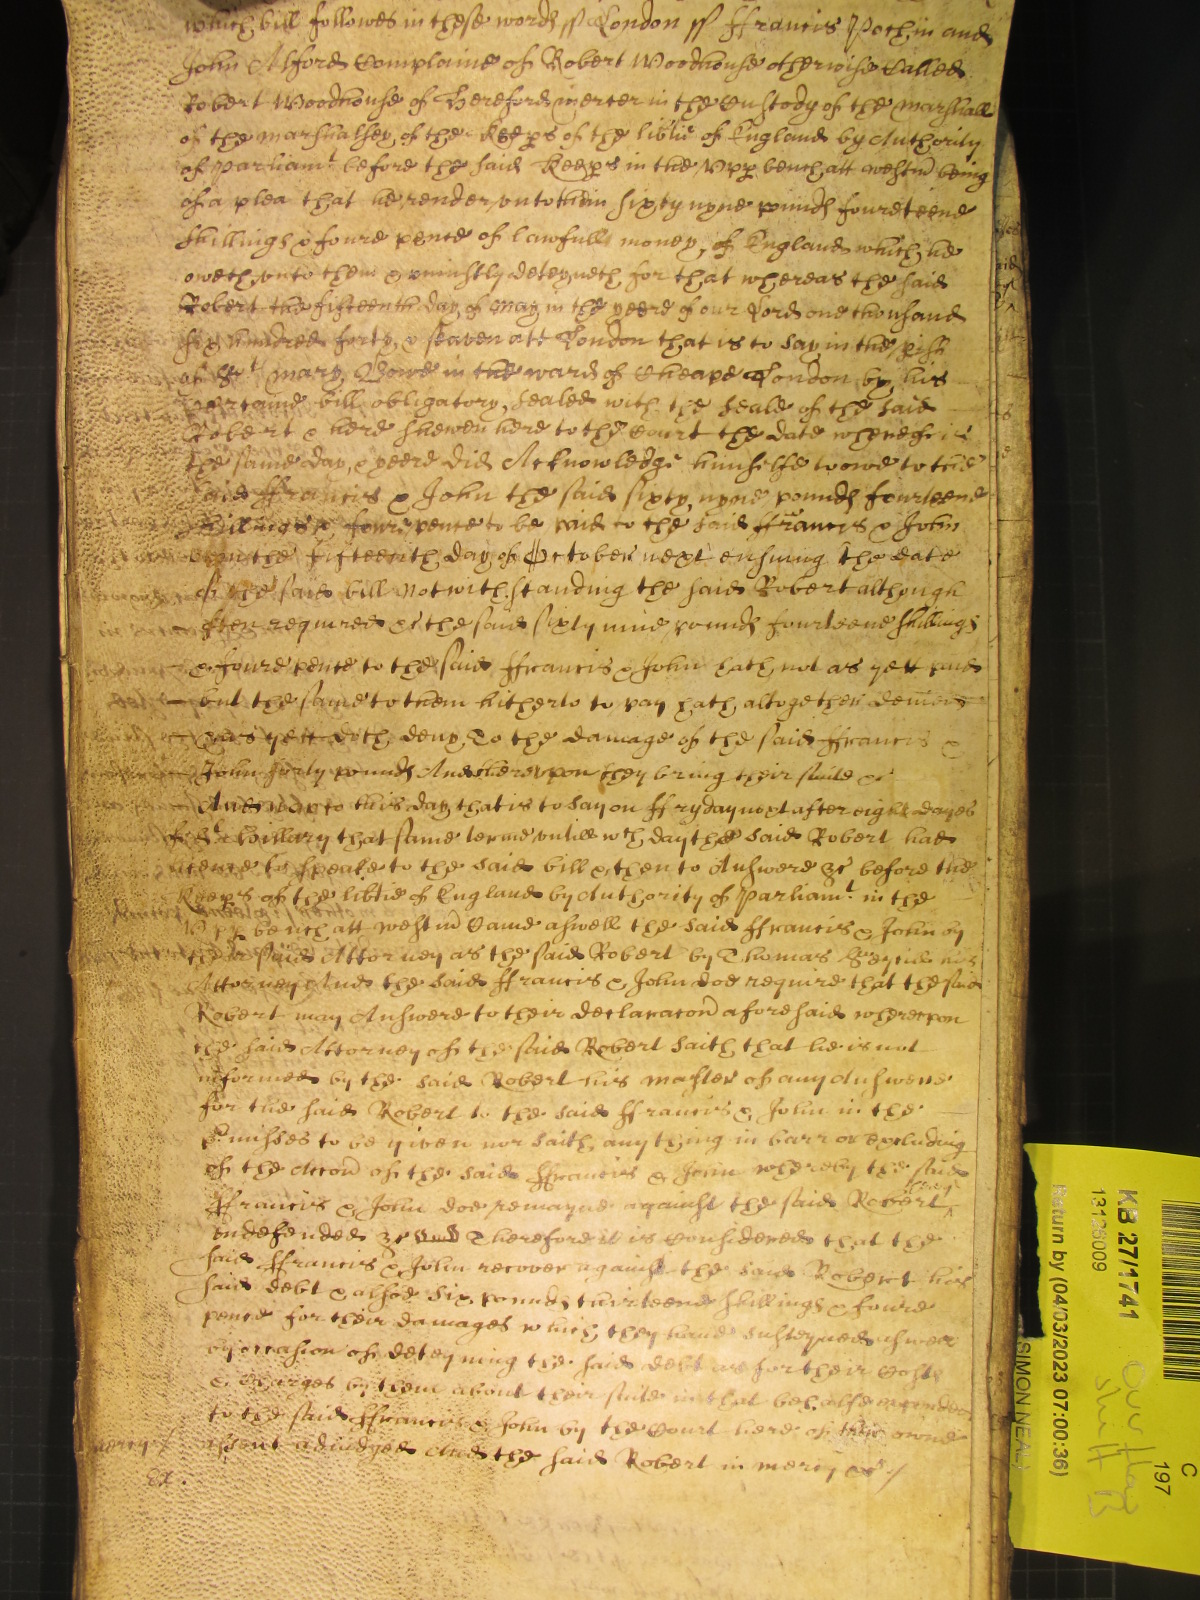 which bill followes in these words ss London ss ffrancis Pochin and
John Alford Complaine of Robert Woodhouse otherwise Called
Robert Woodhouse of Hereford mercer in the Custody of the marshall
of the marshalsey of the Keeps of the libtie of England by Authority
of Parliamt before the said Keeps in the Vpp bench att westm being
of a plea that he render vnto them sixty nyne pounds fourteene
shillings & foure pence of lawfull money of England which he
oweth vnto them & vniustly deteyneth for that whereas the said
Robert the fifteenth day of may in the yeere of our Lord one thousand
six hundred forty & seaven att London that is to say in the pish
of St mary Bowe in the ward of Cheape London by his
certaine bill obligatory sealed with the seale of the said
Robert & here shewen here to the Court the date whereof is
the same day & yeere did Acknowledge himselfe to owe to the
said ffrancis & John the said sixty nyne pounds fourteene
shillings & foure pence to be paid to the said ffrancis & John
vpon the fifteenth day of October next ensuing the date
of the said bill notwithstanding the said Robert although
often required &c the said sixty nine pounds fourteene shillings
& foure pence to the said ffrancis & John hath not as yett paid
but the same to them hitherto to pay hath altogether denied
& as yett doth deny To the damage of the said ffrancis &
John forty pounds And therevpon they bring their suite &c
And now to this day that is to say on ffryday next after eight dayes
of St Hillary that same terme vntill wch day the said Robert had
licence to speake to the said bill & then to Answere &c before the
Keeps of the libtie of England by Authority of Parliamt in the
Vpp bench att westm Came aswell the said ffrancis & John by
their said Attorney as the said Robert by Thomas his
Attorney And the said ffrancis & John doe require that the said
Robert may Answere to their declaracon aforesaid wherevpon
the said Attorney of the said Robert saith that he is not
informed by the said Robert his master of any Answere
for the said Robert to the said ffrancis & John in the
pmisses to be given nor saith any thing in barr or excluding
of the Accon of the said ffrancis & John whereby the said
ffrancis & John doe remayne against the said Robert
vndefended &c Therefore it is Considered that the
said ffrancis & John recover against the said Robert his
said debt & alsoe six pounds thirteene shillings & foure
pence for their damages which they haue susteyned aswell
by occasion of deteyning the said debt as for their Costs
& Charges by them about their suite in that behalfe expended
to the said ffrancis & John by the Court here of their owne
assent adiudged And the said Robert in mercy &c
mercy
Ex
KB 27/1741
1313609
Return by (04/03/2023 07:00:36)
SIMON NEAL
C
197